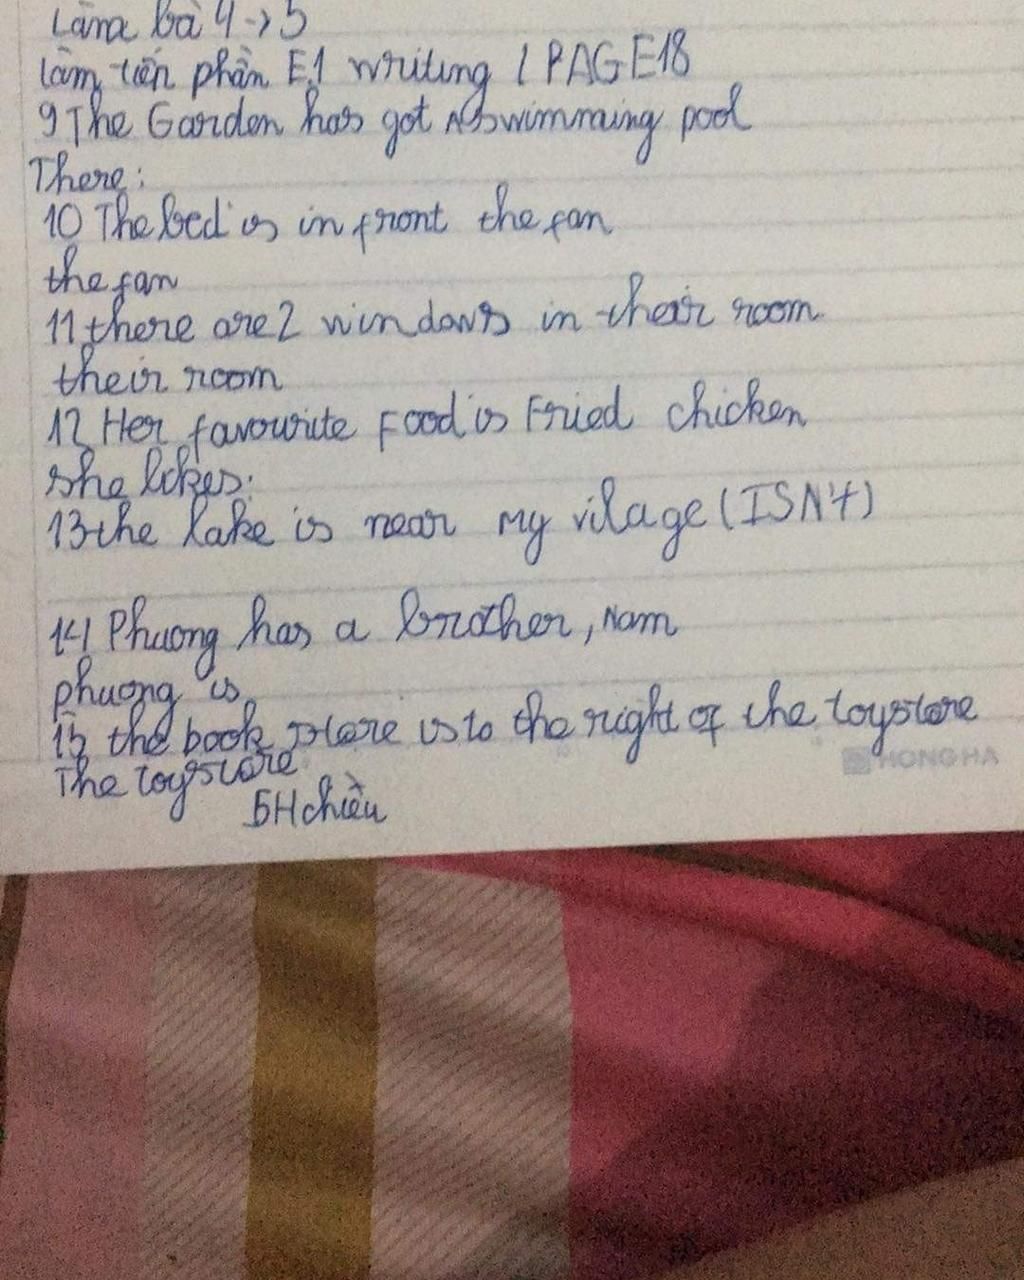 Làm bà 4->5
làm tiếp phần E,1 writing / PAGE18
9 The Garden has got swimming pool
There:
10 The bed is in front the fan
the fan
11 there are 2 windows in their room
their room
12 Her favourite Food is Fried chicken
she likes:
13 the lake is near my vilage (ISN't)
14 Phuong has a brother, Nam
phuong is
15 the book store is to the right of the toystore
The toystore
5H chiều
HONG HA